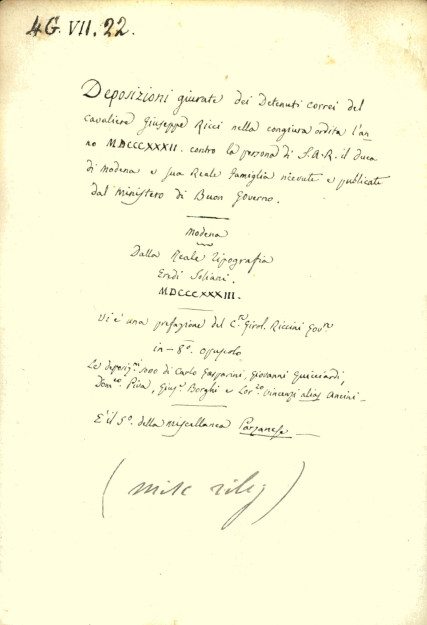 4G. VII. 22.
Deposizioni giurate dei Detenuti correi del
cavaliere Giuseppe Ricci nella congiura ordita l'an
no MDCCCXXXII. contro la persona di S.A.R. il duca
di Modena e sua Reale famiglia ricevute e publicate
dal Ministero di Buon Governo.
Modena
Dalla Reale Tipografia
Eredi Soliani.
MDCCCXXXIII.
Vi è una prefazione del C.te Girol. Riccini Gov.re
in-8.o opuscolo
Le deposiz.ni sono di Carlo Gasparini, Giovanni Guicciardi,
Dom.co Piva, Gius.e Borghi e Lor.zo Vincenzi alias Ancini -
È il 5.o della miscellanea Parzanese -
(misc rileg)